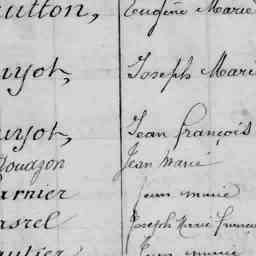 utton, Eugène Marie
uyot, Joseph Marie
uyot, Jean François
louazon Jean Marie
arnier Jean marie
asrel Joseph Marie François
autier Jean marie